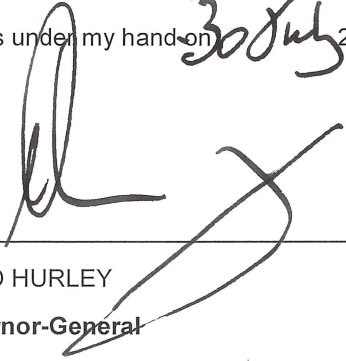 s under my hand on 30 July 2
D HURLEY
rnor-General